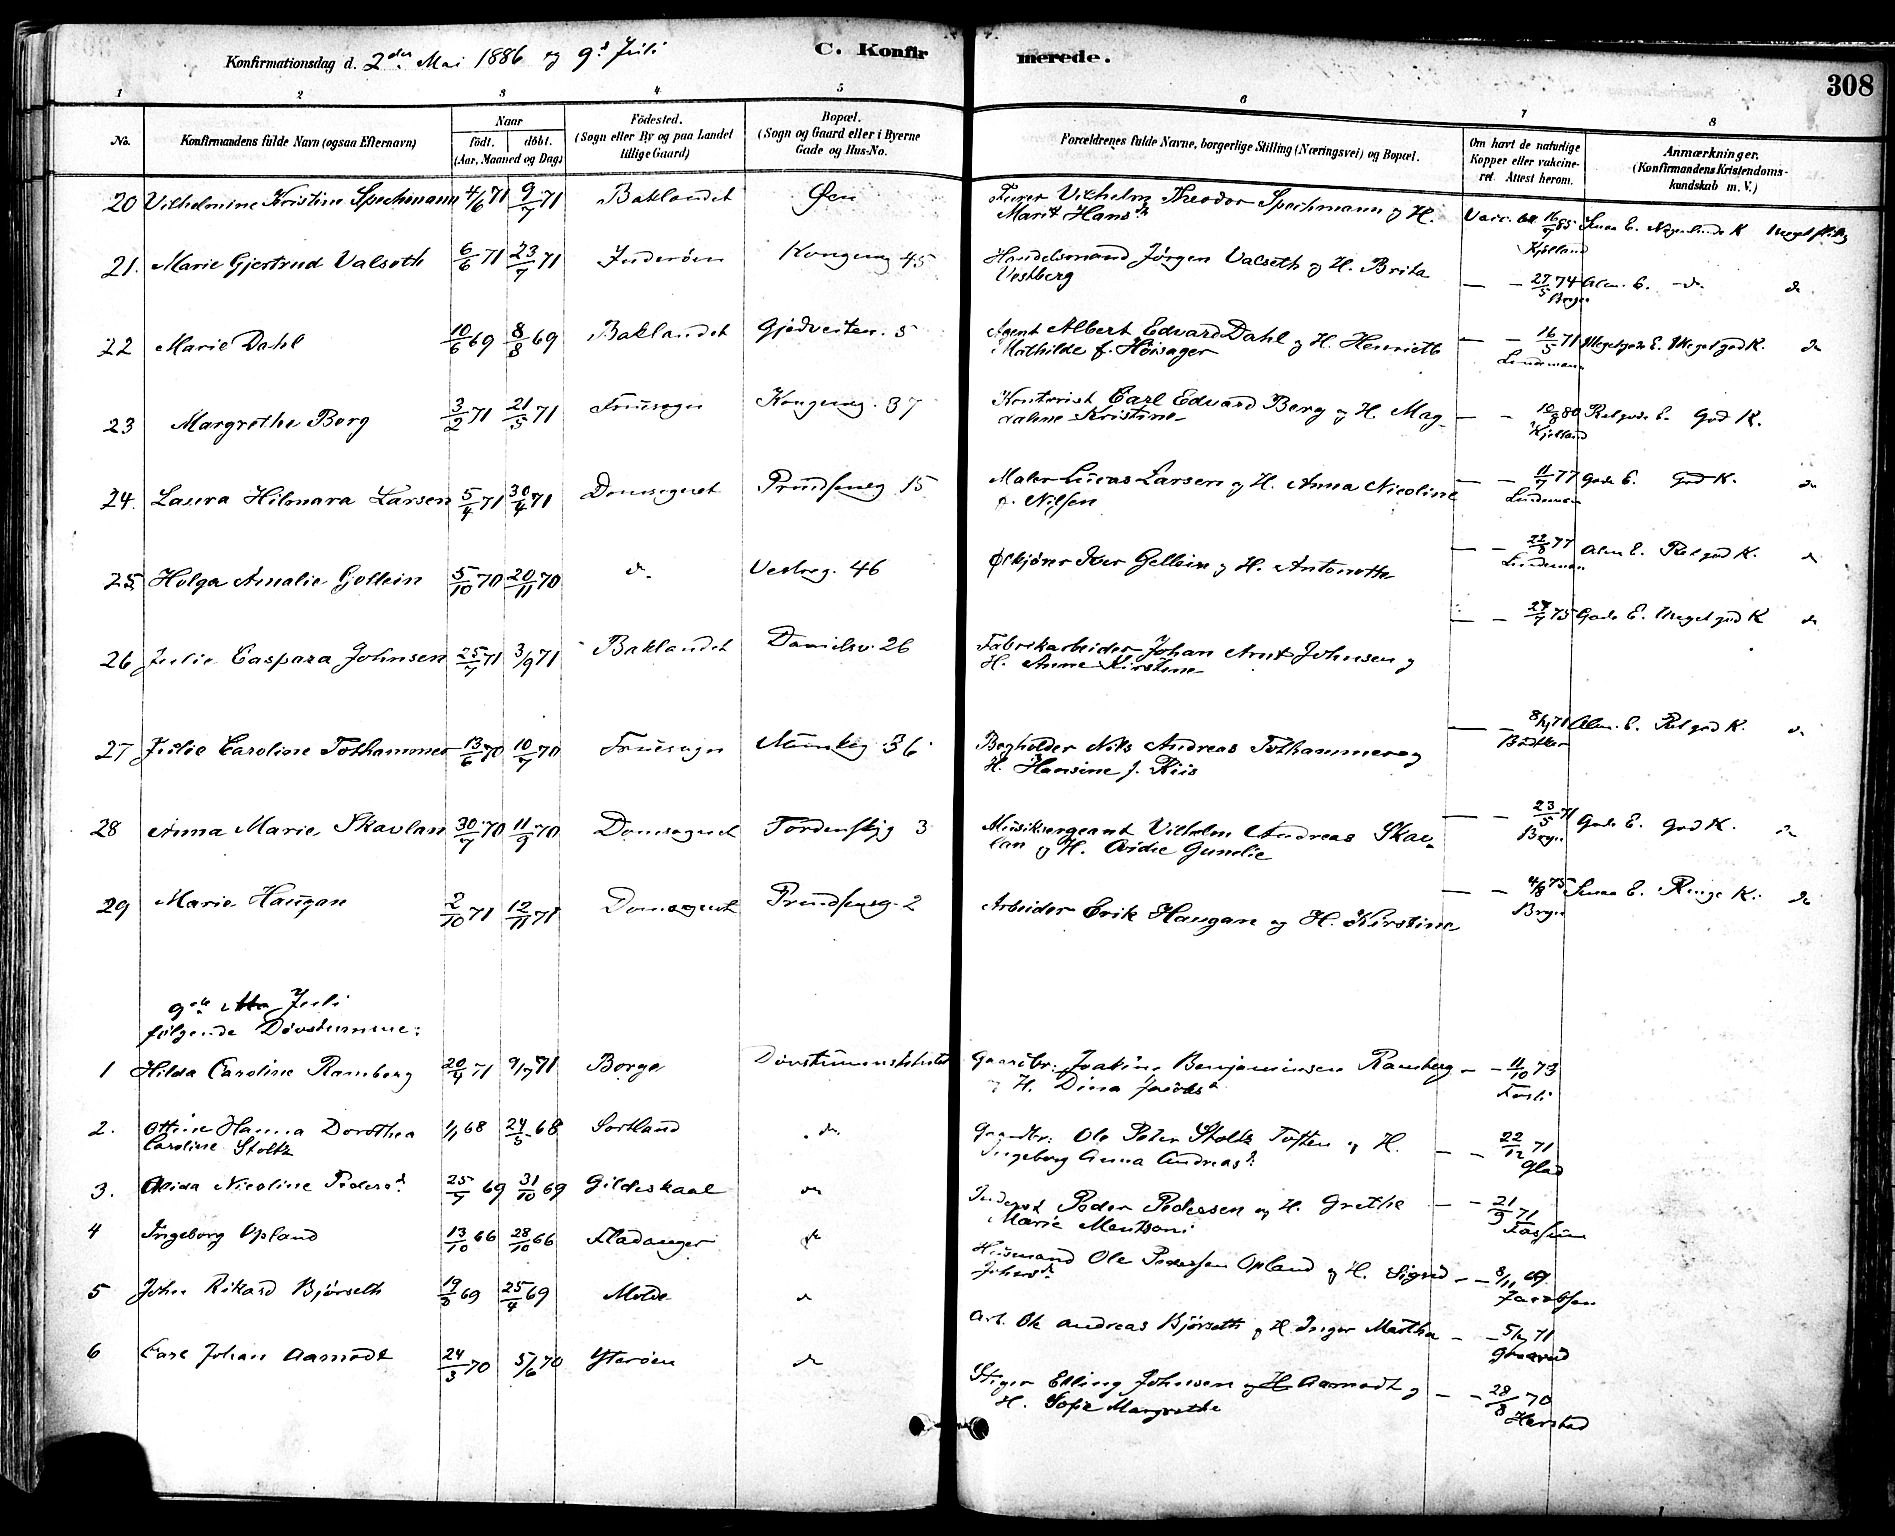 Konfirmationsdag d. 2den Mai 1886 og 9d Juli
C. Konfirmerede.
308
1 2 3 4 5 6 7 8
No.
Konfirmandens fulde Navn (ogsaa Efternavn)
Naar
födt. döbt.
(Aar, Maaned og Dag)
Födested.
(Sogn eller By og paa Landet
tillige Gaard)
Bopæl.
(Sogn og Gaard eller i Byerne
Gade og Hus-No.
Forældrenes fulde Navne, borgerlige Stilling (Næringsvei) og Bopæl.
Om havt de naturlige
Kopper eller vakcine-
ret. Attest herom.
Anmærkninger.
(Konfirmandens Kristendoms-
kundskab m. V.)
20 Vilhelmine Kristine Spechmann 4/6 71 9/7 71 Baklandet Øen Furer Vilhelm Theodor Spechmann og H. Vacc. 16/9 85
Marit Hansd. Kjelland
21. Marie Gjertrud Valseth 6/6 71 23/7 71 Inderøen Kongeng 45 Handelsmand Jørgen Valseth og H. Brita
Vestberg — - 27/5 74 Alm. E. - do. do
22 Marie Dahl 10/6 69 8/8 69 Baklandet Gjedveiten. 5 Agent Albert Edvard Dahl og H. Henriette
Mathilde f. Høisager — - 16/5 71 Meget gode E. Meget god K. do
Lindemann
23 Margrethe Berg 3/2 71 21/5 71 Fruesogn Kongeng. 37 Kontorist Carl Edvard Berg og H. Mag-
dalene Kristine — - 10/8 80 Rel gode E. God K.
Kjelland
24. Laura Hilmara Larsen 5/4 71 30/4 71 Domsognet Prindsensg 15 Maler Lucas Larsen og H. Anna Nicoline
f. Nilsen — - 11/9 77 Gode E. God K. do
Lindeman
25 Helga Amalie Gellein 5/10 70 20/11 70 do. Vestreg. 46 Ølkjører Iver Gellein og H. Antonette
— - 22/8 77 Alm E. Rel god K. do
Lindeman
26 Julie Caspara Johnsen 25/7 71 3/9 71 Baklandet Danielsv. 26 Fabrikarbeider Johan Arnt Johnsen og
H. Anne Kirstine — - 27/7 75 Gode E. Meget god K do
27 Julie Caroline Tothammer 13/6 70 10/7 70 Fruesogn Munkeg 36 Bogholder Nils Andreas Tothammer og
H. Hansine f. Riis — - 71 Alm. E. Rel god K. do
28 Anna Marie Skavlan 30/7 70 11/9 70 Domsognet Tordenskjg 3 Musiksergeant Vilhelm Andreas Skav-
lan og H. Avidie Gunelie — - 23/5 71 Gode E. God K. do
29 Marie Haugan 2/10 71 12/11 71 Domsognet Prindsensg. 2 Arbeider Erik Haugan og H. Kirstine
— - 4/8 75 Smaa E. Ringe K. do
9de Juli
følgende Døvstumme:
1 Hilda Caroline Ramberg 20/4 71 9/7 71 Borge Døvstummeinstitutet Gaardbr. Joakim Benjaminsen Ramberg — - 11/10 73
og H. Dina Jacobsd.
2. Ottine Hanna Dorothea 1/1 68 24/5 68 Sortland do. Gaardbr. Ole Peter Stoltz Toften og H. — - 22/12 71
Caroline Stoltz Ingeborg Anna Andreasd. Glad
3. Alida Nicoline Pedersd. 25/7 69 31/10 69 Gildeskaal do Inderst Peder Pedersen og H. Grethe — - 21/9 71
Marie Mentsoni
4 Ingeborg Opland 13/10 66 28/10 66 Fladanger do Husmand Ole Pedersen Opland og H. Sigrid — - 8/11 69
Johansd. Jacobsen
5 Johan Rikard Bjørseth 19/3 69 25/4 69 Molde do Arb. Ole Andreas Bjørseth og H. Inger Martha — - 71
6 Carl Johan Aamodt 24/3 70 5/6 70 Yterøen do Stiger Elling Johnsen Aamodt og — - 28/8 70
H. Sofie Margrethe Harstad